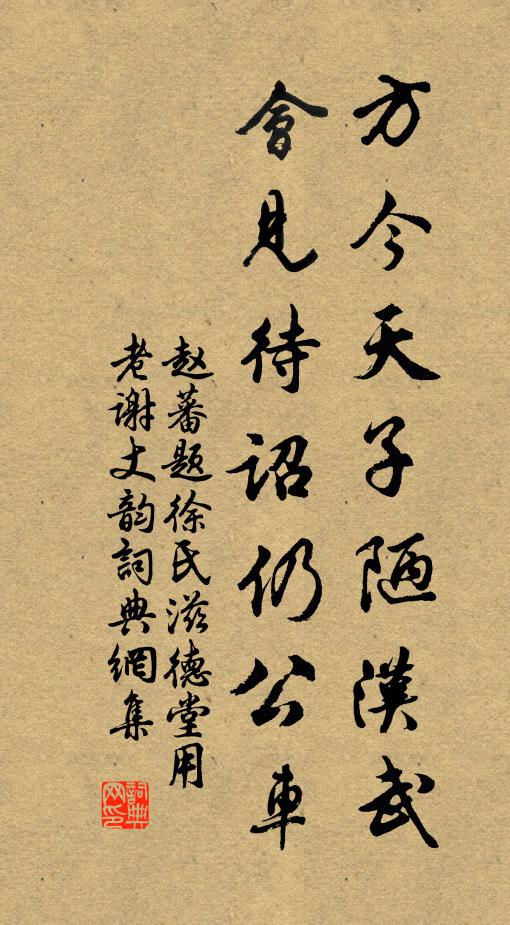 方今天子陋漢武
會見待詔仍公車
赵蕃题徐氏滋德堂用
老谢丈韵詞典網集
詞典网印